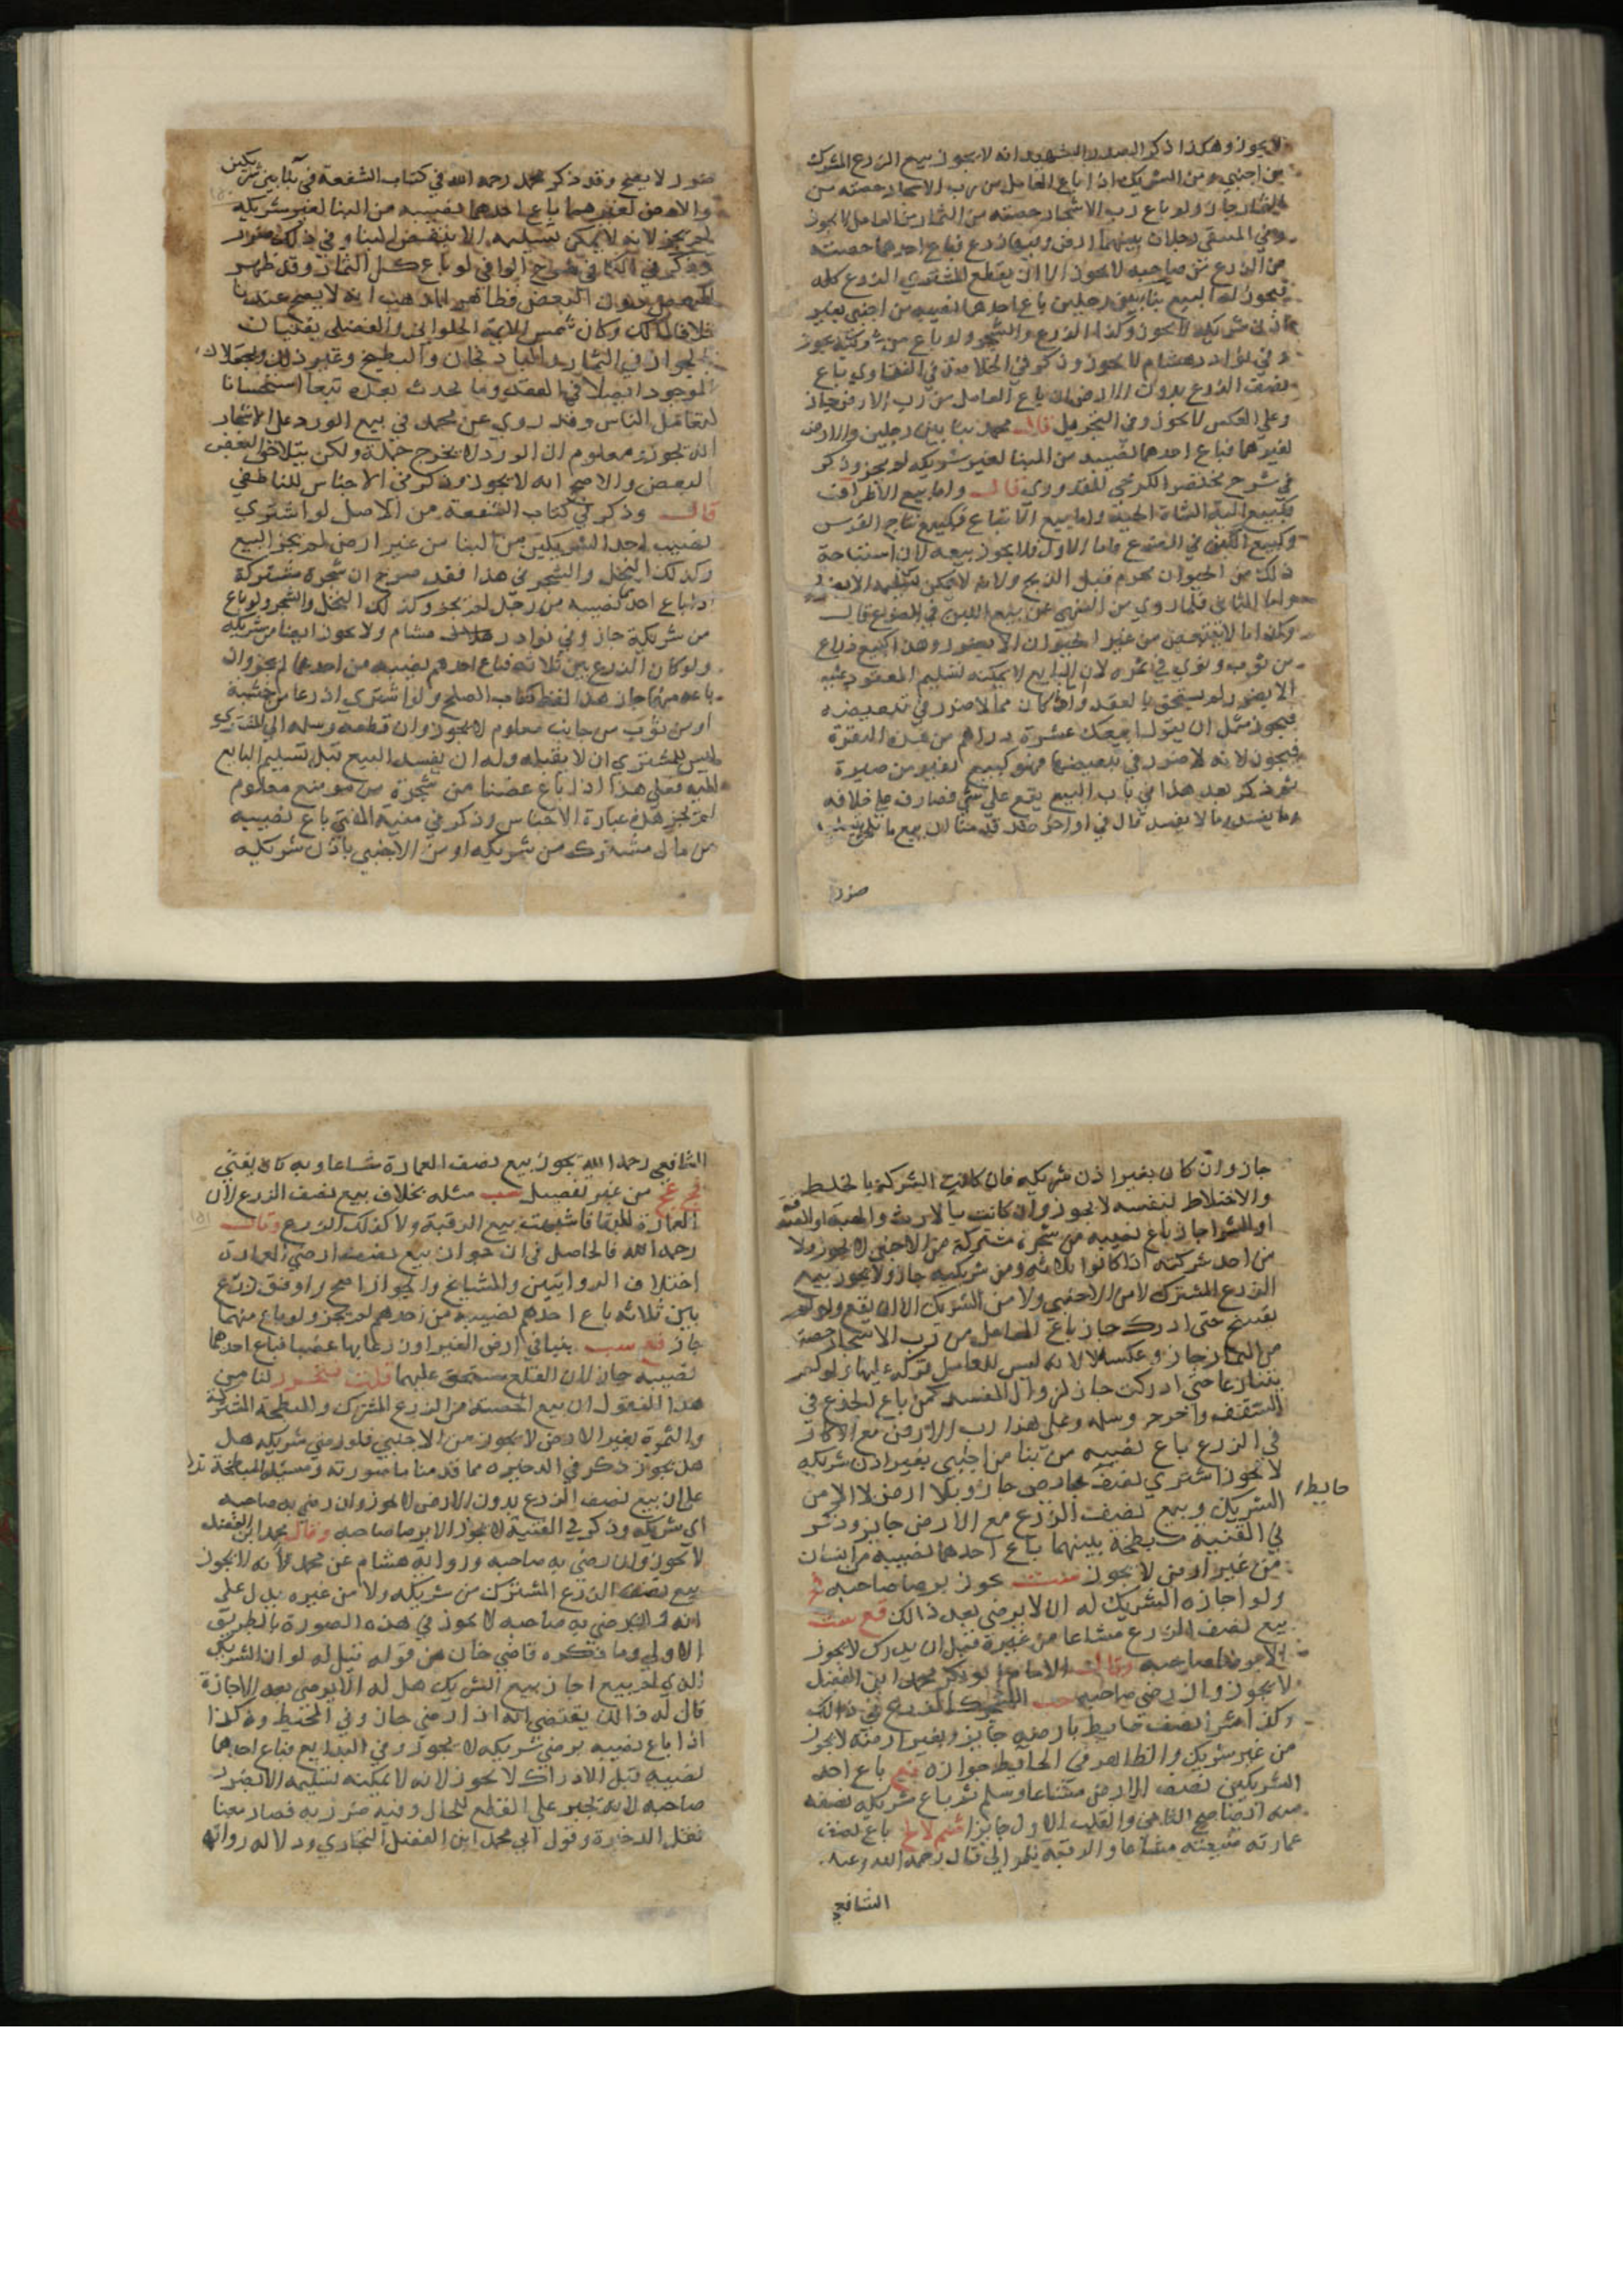 لا يجوز وهكذا ذكر الصدر الشهيد انه لا يجوز بيع الزرع المشترك
من اجنبي ومن الشريك اذا باع العامل من رب الاشجار حصته من
الثمار جاز ولو باع رب الاشجار حصته من الثمار من العامل لا يجوز
وفي المنتقى رجلان بينهما ارض وفيها زرع فباع احدهما حصته
من الزرع من صاحبه لا يجوز الا ان يقطع المشتري الزرع كله
فيجوز له البيع بنا بين رجلين باع احدهما نصيبه من اجنبي بغير
اذن شريكه لا يجوز وكذا الزرع والشجر ولو باع من شريكه يجوز
وفي نوادر هشام لا يجوز وذكر في الخلاصة في الفتاوي باع
نصف الزرع بدون الارض ان باع العامل من رب الارض جاز
وعلى العكس لا يجوز وفي التجريد قال محمد بنا بين رجلين والارض
لغيرهما فباع احدهما نصيبه من البنا لغير شريكه لم يجز وذكر
في شرح مختصر الكرخي للقدوري قال واما بيع الاطراف
فكبيع الية الشاة الحية واما بيع الاتباع فكبيع نتاج الفرس
وكبيع اللبن في الضرع فاما الاول فلا يجوز بيعه لان استباحة
ذلك من الحيوان محرم قبل الذبح ولانه لا يمكن تسليمه الا بضرر
واما الثاني فلما روي من النهي عن بيع اللبن في الضرع قال
وكذا ما لا يتبعض من غير الحيوان الا بضرر وهذا كبيع ذراع
من ثوب ونوى في تمره لان البايع لا يمكنه تسليم المعقود عليه
الا بضرر لم يستحق بالعقد وان كان مما لا ضرر في تبعيضه
فيجوز مثل ان يقول ابيعك عشرة دراهم من هذه النقرة
فيجوز لانه لا ضرر في تبعيضها فهو كبيع قفيز من صبرة
ثم ذكر بعد هذا في باب البيع يقع على شي فصار على خلافه
وما يفسد وما لا يفسد قال في اواخره قد قدمنا ان بيع ما
ضرر
ضرر لا يصح وقد ذكر محمد رحمه الله في كتاب الشفعة في بنا بين شريكين
والارض لغيرهما باع احدهما نصيبه من البنا لغير شريكه
لم يجز لانه لا يمكن تسليمه الا بنقض البنا وفي ذلك ضرر
وذكر في الكافي شرح الوافي لو باع كل الثمار وقد ظهر
البعض دون البعض فظاهر المذهب انه لا يصح عندنا
خلافا لمالك وكان شمس الايمة الحلواني والفضلي يفتيان
بالجواز في الثمار والباذنجان والبطيخ وغير ذلك ويجعلان
الموجود اصلا في العقد وما يحدث بعده تبعا استحسانا
لتعامل الناس وقد روي عن محمد في بيع الورد على الاشجار
انه يجوز ومعلوم ان الورد لا يخرج جملة ولكن يتلاحق البعض
البعض والاصح انه لا يجوز وذكر في الاجناس للناطفي
قال وذكر في كتاب الشفعة من الاصل لو اشترى
نصيب احد الشريكين من البنا من غير ارض لم يجز البيع
وكذلك النخل والشجر في هذا فقد صرح ان شجرة مشتركة
اذا باع احدهما نصيبه من رجل لم يجز وكذلك النخل والشجر ولو باع
من شريكه جاز وفي نوادر هشام ولا يجوز ايضا من شريكه
ولو كان الزرع بين ثلاثة فباع احدهم نصيبه من احدهما لم يجز وان
باعه منهما جاز هذا لفظ كتاب الصلح ولو اشترى اذرعا من خشبة
او من ثوب من جانب معلوم لا يجوز وان قطعه وسلمه الى المشتري
ليس للمشتري ان لا يقبله وله ان يفسد البيع قبل تسليم البايع
اليه فعلى هذا اذا باع غصنا من شجرة من موضع معلوم
لم يجز هذه عبارة الاجناس وذكر في منية المفتي باع نصيبه
من مال مشترك من شريكه او من الاجنبي باذن شريكه
جاز وان كان بغير اذن شريكه فان كانت الشركة بالخلط
والاختلاط لنفسه لا يجوز وان كانت بالارث والهبة او الصدقة
او الشرا جاز باع نصيبه من شجرة مشتركة من الاجنبي لا يجوز ولا
من احد شركته اذا كانوا ثلاثة ومن شريكيه جاز ولا يجوز بيع
الزرع المشترك لا من الاجنبي ولا من الشريك الا ان يقع ولو لم
يفسخ حتى ادرك جاز باع العامل من رب الاشجار حصته
من الثمار جاز وعكسه لا لانه ليس للعامل تركه عليها ولو لم
يتنازعا حتى ادركت جاز لزوال المفسد كمن باع الجذع في
السقف واخرجه وسلمه وعلى هذا رب الارض مع الاكار
في الزرع باع نصيبه من بنا من اجنبي بغير اذن شريكه
لا يجوز اشترى نصف بارض جاز وبلا ارض لا الا من
حايط
الشريك وبيع نصف الزرع مع الارض جايز وذكر
في القنية مبطخة بينهما باع احدهما نصيبه من انسان
من غير ارض لا يجوز يجوز برضا صاحبه
ولو اجازه الشريك له ان لا يرضى بعد ذالك قع
بيع نصف الزرع مشاعا من غيره قبل ان يدرك لا يجوز
الا برضا صاحبه وقال الامام ابو بكر محمد ابن الفضل
لا يجوز وان رضي صاحبه الزرع في ذالك
وكذا اشترى نصف حايط بارضه جايز وبغير ارضه لا يجوز
من غير شريك والظاهر في الحايط جوازه باع احد
الشريكين نصف الارض مشاعا وسلم ثم باع شريكه نصفه
عمارته مبيعته مشاعا والرقبة قال رحمه الله وعند
الشافعي
الشافعي رحمه الله يجوز بيع نصف العمارة مشاعا وبه كان يفتي
من غير تفصيل مثله بخلاف بيع نصف الزرع لان
العمارة للبقا فاشبهت بيع الرقبة ولا كذلك الزرع وقال
رحمه الله فالحاصل في ان جواز بيع نصف ارضي العمارة
اختلاف الروايتين والمشايخ والجواز اصح واوفق زرع
بين ثلاثة باع احدهم نصيبه من احدهم لم يجز ولو باع منهما
جاز بنيا في ارض الغير او زرعا بها غصبا فباع احدهما
نصيبه جاز لان القلع مستحق عليهما قلت فتحرر لنا من
هذا المنقول ان بيع الحصة من الزرع المشترك والمبطخة المشتركة
والثمرة بغير الارض لا يجوز من الاجنبي فلو رضي شريكه هل
هل يجوز ذكر في الذخيره مما قدمنا ما صورته ومسيلة المبطخة تدل
على ان بيع نصف الزرع بدون الارض لا يجوز وان رضي به صاحبه
اي شريكه وذكر في القنية لا يجوز الا برضا صاحبه وقال محمد ابن الفضل
لا يجوز وان رضي به صاحبه ورواية هشام عن محمد لانه لا يجوز
بيع نصف الزرع المشترك من شريكه ولا من غيره يدل على
انه وان رضي به صاحبه لا يجوز في هذه الصورة بالطريق
الاولى وما ذكره قاضي خان من قوله قيل له لو ان الشريك
الذي لم يبع اجاز بيع الشريك هل له ان لا يرضى بعد الاجازة
قال له ذالك يقتضي انه اذا رضي جاز وفي المحيط وذكر اذا
اذا باع نصيبه برضى شريكه لا يجوز وفي البدايع فباع احدهما
نصيبه قبل الادراك لا يجوز لانه لا يمكنه تسليمه الا بضرر
صاحبه لانه يجبر على القطع للحال وفيه ضرر به فصار معنا
نقل الذخيرة وقول ابي محمد ابن الفضل البخاري ودلالة رواية